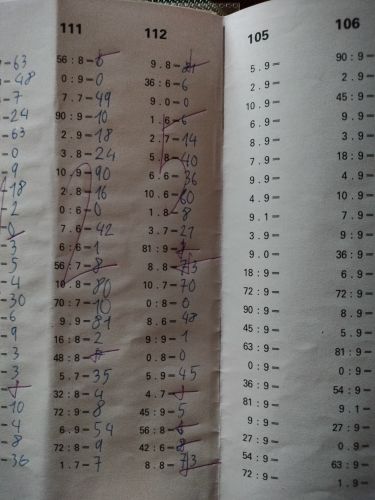 -63
-48
-7
-24
-63
-0
-9
-18
-2
0
-3
-5
-4
-30
-6
-9
-3
-3
-10
-4
-8
-36
111
56 : 8 -
0 : 9 - 0
7 . 7 - 49
90 : 9 - 10
2 . 9 - 18
3 . 8 - 24
10 . 9 - 90
2 . 8 - 16
0 : 6 - 0
7 . 6 - 42
6 : 6 - 1
56 : 7 - 8
10 . 8 - 80
70 : 7 - 10
9 . 9 - 81
16 : 8 - 2
48 : 8 -
5 . 7 - 35
32 : 8 - 4
72 : 9 - 8
6 . 9 - 54
72 : 8 - 9
1 . 7 - 7
112
9 . 8 -
36 : 6 - 6
9 . 0 - 0
1 . 6 - 6
2 . 7 - 14
5 . 8 - 40
6 . 6 - 36
10 . 6 - 60
1 . 8 - 8
3 . 7 - 21
81 : 9 -
8 . 8 - 73
10 . 7 - 70
0 : 8 - 0
8 . 6 - 48
9 : 9 - 1
0 . 8 - 0
5 . 9 - 45
4 . 7 -
45 : 9 - 5
56 : 8 -
42 : 6 -
8 . 8 - 73
105
5 . 9 -
2 . 9 -
10 . 9 -
6 . 9 -
8 . 9 -
7 . 9 -
9 . 9 -
4 . 9 -
9 . 1 -
3 . 9 -
9 . 0 -
18 : 9 -
72 : 9 -
90 : 9 -
45 : 9 -
63 : 9 -
0 : 9 -
36 : 9 -
81 : 9 -
9 : 9 -
27 : 9 -
54 : 9 -
72 : 9 -
106
90 : 9 -
2 . 9 -
45 : 9 -
9 . 9 -
3 . 9 -
18 : 9 -
4 . 9 -
10 . 9 -
7 . 9 -
9 : 9 -
36 : 9 -
6 . 9 -
72 : 9 -
8 . 9 -
5 . 9 -
81 : 9 -
0 : 9 -
54 : 9 -
9 . 1 -
27 : 9 -
0 . 9 -
63 : 9 -
1 . 9 -